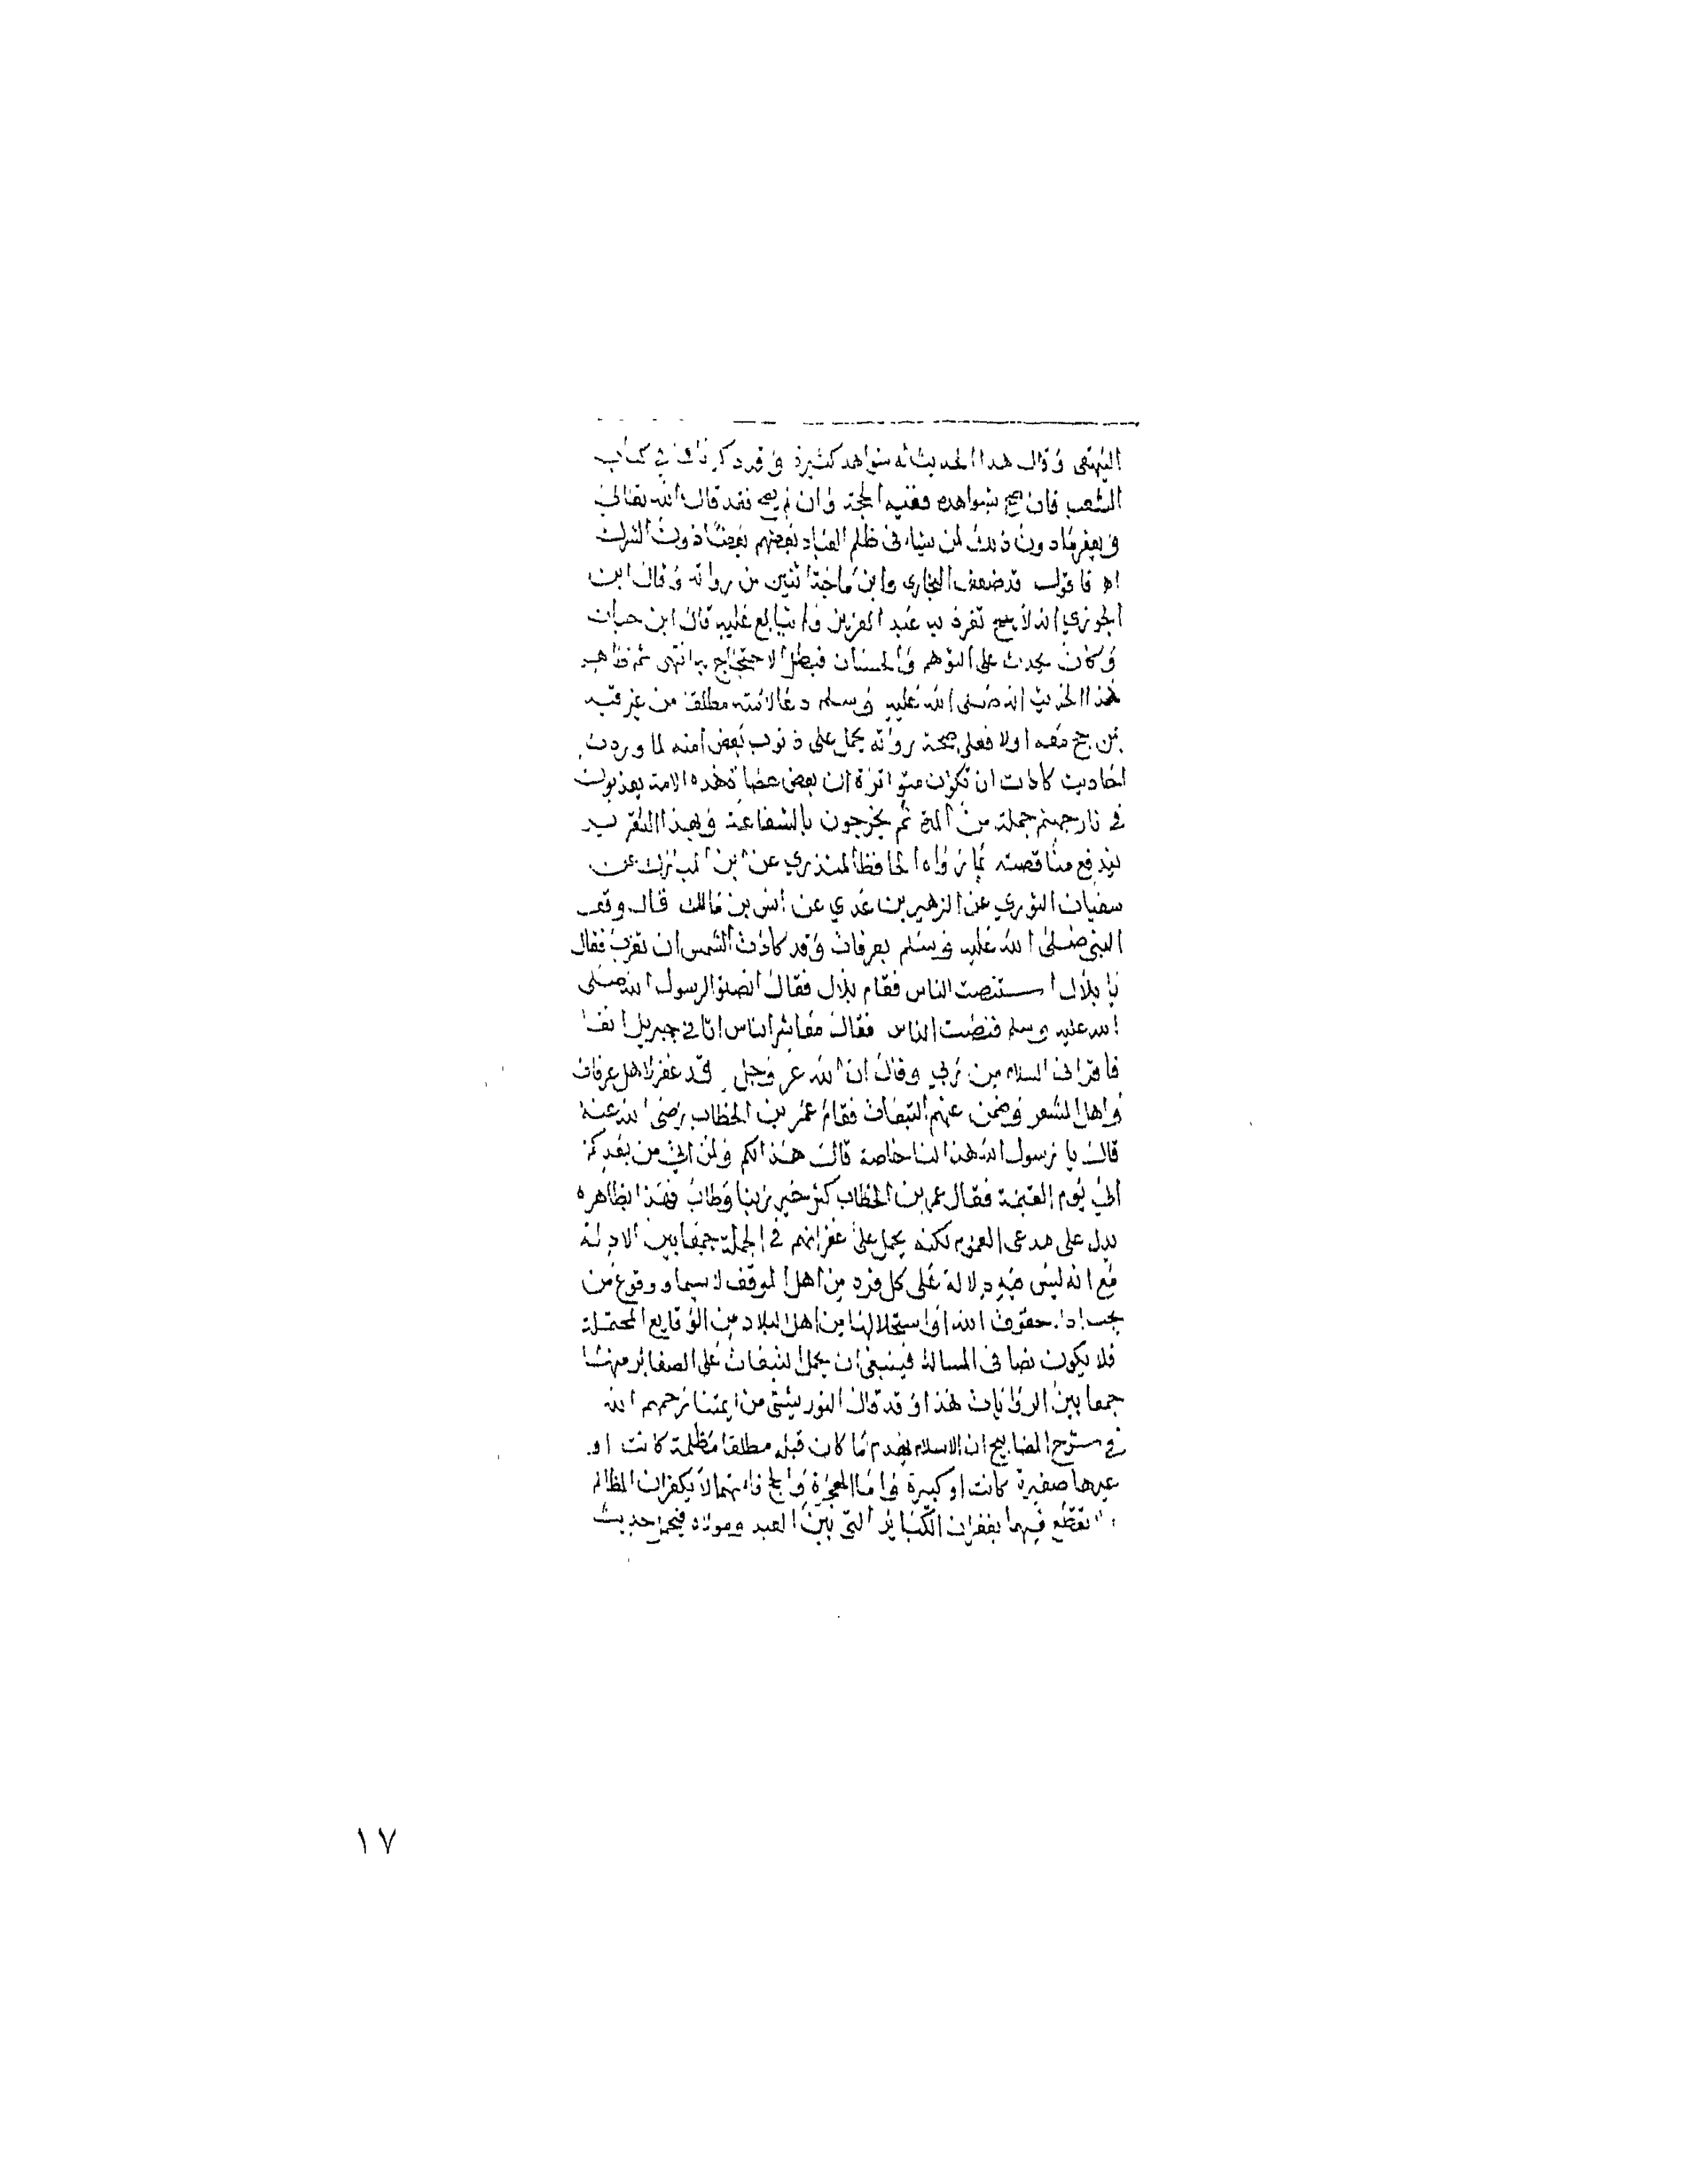 البيهقي وقال هذا الحديث له شواهد كثيرة وقد ذكرناها في كتاب
الشعب فان صح بشواهده ففيه الحجة وان لم يصح فقد قال الله تعالى
ويغفر ما دون ذلك لمن يشاء وظلم العباد بعضهم بعضا دون الشرك
اه فاقول قد ضعف البخاري وابن ماجة اثنين من رواته وقال ابن
الجوزي انه لا يصح تفرد به عبد العزيز ولم يتابع عليه قال ابن حبان
وكان يحدث على التوهم والحسبان فبطل الاحتجاج به انتهى ثم ظاهر
هذا الحديث انه صلى الله عليه وسلم دعا لامته مطلقا من غير قيد
بمن حج معه اولا فعلى صحة رواته يحمل على ذنوب بعض امته لما وردت
احاديث كادت ان تكون متواترة ان بعض عصاة هذه الامة يعذبون
في نار جهنم جملة من المدة ثم يخرجون بالشفاعة وبهذا التقرير
يندفع مناقصته بما رواه الحافظ المنذري عن ابن المبارك عن
سفيان الثوري عن الزهير بن عدي عن انس بن مالك قال وقف
النبي صلى الله عليه وسلم بعرفات وقد كادت الشمس ان تغرب فقال
يا بلال استنصت الناس فقام بلال فقال انصتوا لرسول الله صلى
الله عليه وسلم فنصت الناس فقال معاشر الناس اتاني جبريل انفا
فاقراني السلام من ربي وقال ان الله عز وجل قد غفر لاهل عرفات
واهل المشعر وضمن عنهم التبعات فقام عمر بن الخطاب رضي الله عنه
قال يا رسول الله هذا لنا خاصة قال هذا لكم ولمن اتى من بعدكم
الى يوم القيمة فقال عمر بن الخطاب كثر خير ربنا وطاب فهذا بظاهره
يدل على مدعى العموم لكنه يحمل على غفرانهم في الجملة جمعا بين الادلة
مع انه ليس فيه دلالة على كل فرد من اهل الموقف لاسيما ووقوع من
يجب اداء حقوق الله او استحلالها من اهل البلاد من الوقايع المحتملة
فلا يكون نصا في المسالة فينبغي ان يحمل التبعات على الصغائر منها
جمعا بين الروايات هذا وقد قال التوربشتي من ايمتنا رحمهم الله
في شرح المصابيح ان الاسلام يهدم ما كان قبله مطلقا مظلمة كانت او
غيرها صغيرة كانت او كبيرة واما الهجرة والحج فانهما لا يكفران المظالم
ولا نقطع فيهما بغفران الكبائر التي بين العبد ومولاه فيحمل حديث
١٧